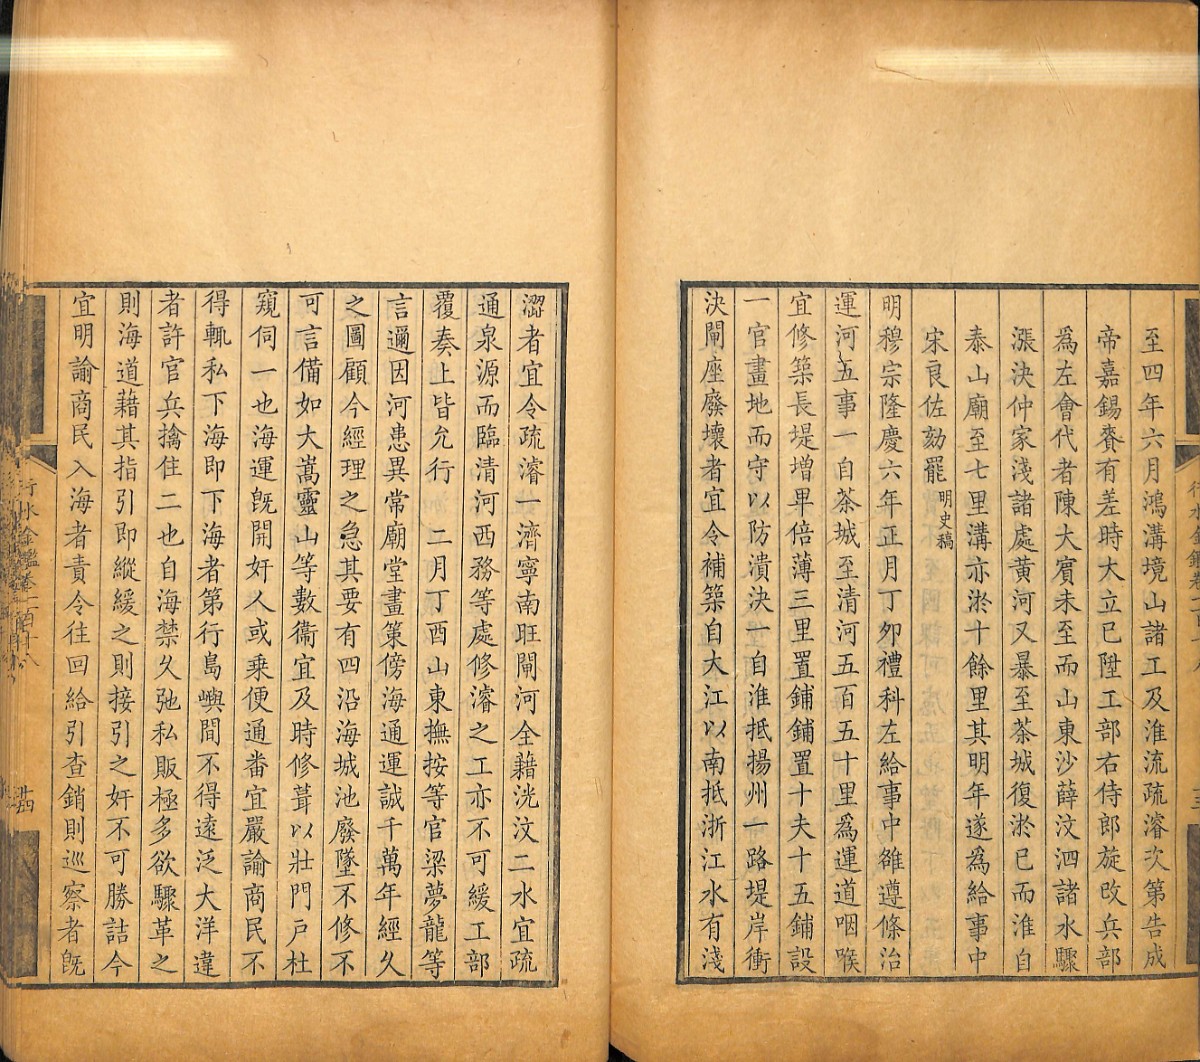 至四年六月鴻溝境山諸工及淮流疏濬次第告成
帝嘉錫賚有差時大立已陞工部右侍郎旋改兵部
爲左會代者陳大賓未至而山東沙薛汶泗諸水驟
漲決仲家淺諸處黃河又暴至茶城復淤已而淮自
泰山廟至七里溝亦淤十餘里其明年遂爲給事中
宋良佐劾罷明史稿
明穆宗隆慶六年正月丁卯禮科左給事中雒遵條治
運河五事一自茶城至清河五百五十里爲運道咽喉
宜修築長堤增卑倍薄三里置鋪鋪置十夫十五鋪設
一官畫地而守以防潰決一自淮抵揚州一路堤岸衝
決閘座廢壞者宜令補築自大江以南抵浙江水有淺
澀者宜令疏濬一濟寧南旺閘河全藉洸汶二水宜疏
通泉源而臨清河西務等處修濬之工亦不可緩工部
覆奏上皆允行 二月丁酉山東撫按等官梁夢龍等
言邇因河患異常廟堂畫策傍海通運誠千萬年經久
之圖顧今經理之急其要有四沿海城池廢墜不修不
可言備如大嵩靈山等數衞宜及時修葺以壯門戸杜
窺伺一也海運既開奸人或乘便通番宜嚴諭商民不
得輒私下海即下海者第行島嶼間不得遠泛大洋違
者許官兵擒住二也自海禁久弛私販極多欲驟革之
則海道藉其指引即縱緩之則接引之奸不可勝詰今
宜明諭商民入海者責令往回給引查銷則巡察者既
行水金鑑卷一百十八